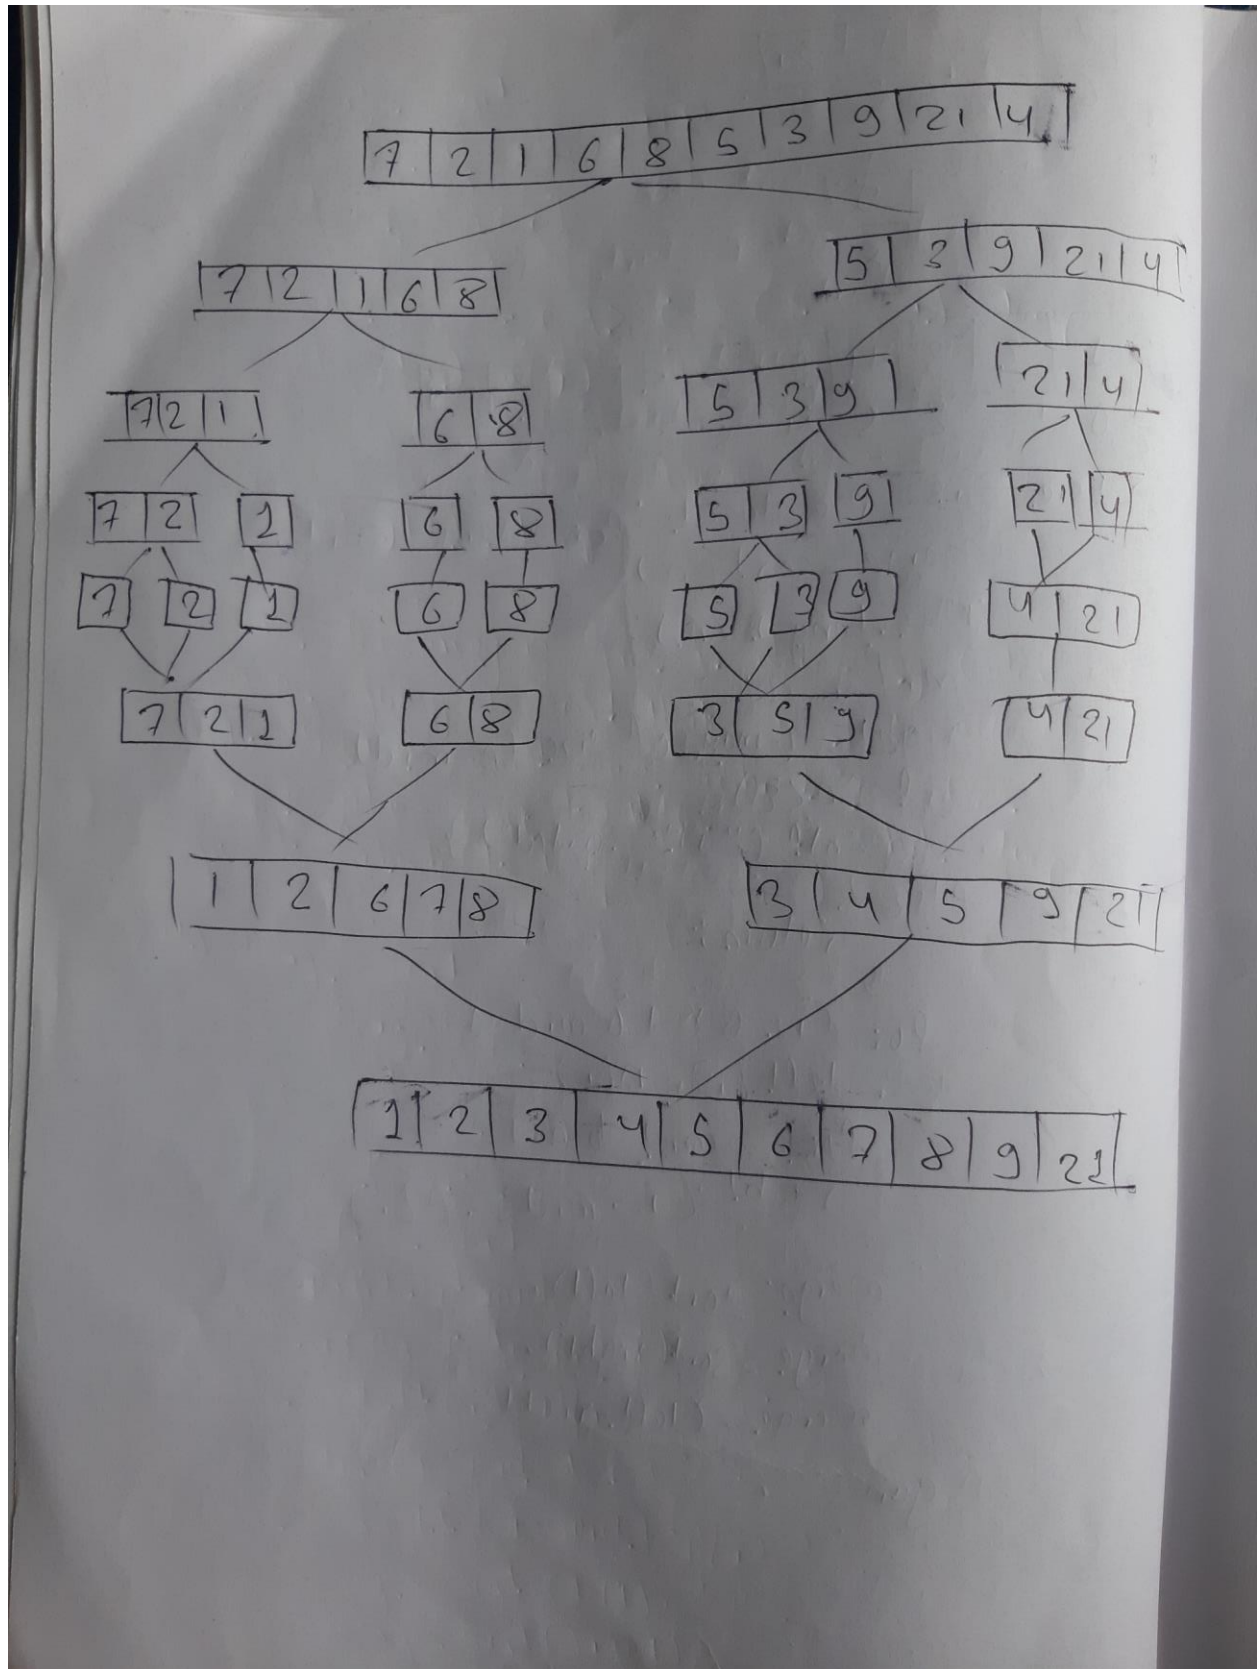 7 2 1 6 8 5 3 9 21 4
7 2 1 6 8 5 3 9 21 4
7 2 1 6 8 5 3 9 21 4
7 2 1 6 8 5 3 9 21 4
7 2 1 6 8 5 3 9 4 21
7 2 1 6 8 3 5 9 4 21
1 2 6 7 8 3 4 5 9 21
1 2 3 4 5 6 7 8 9 21